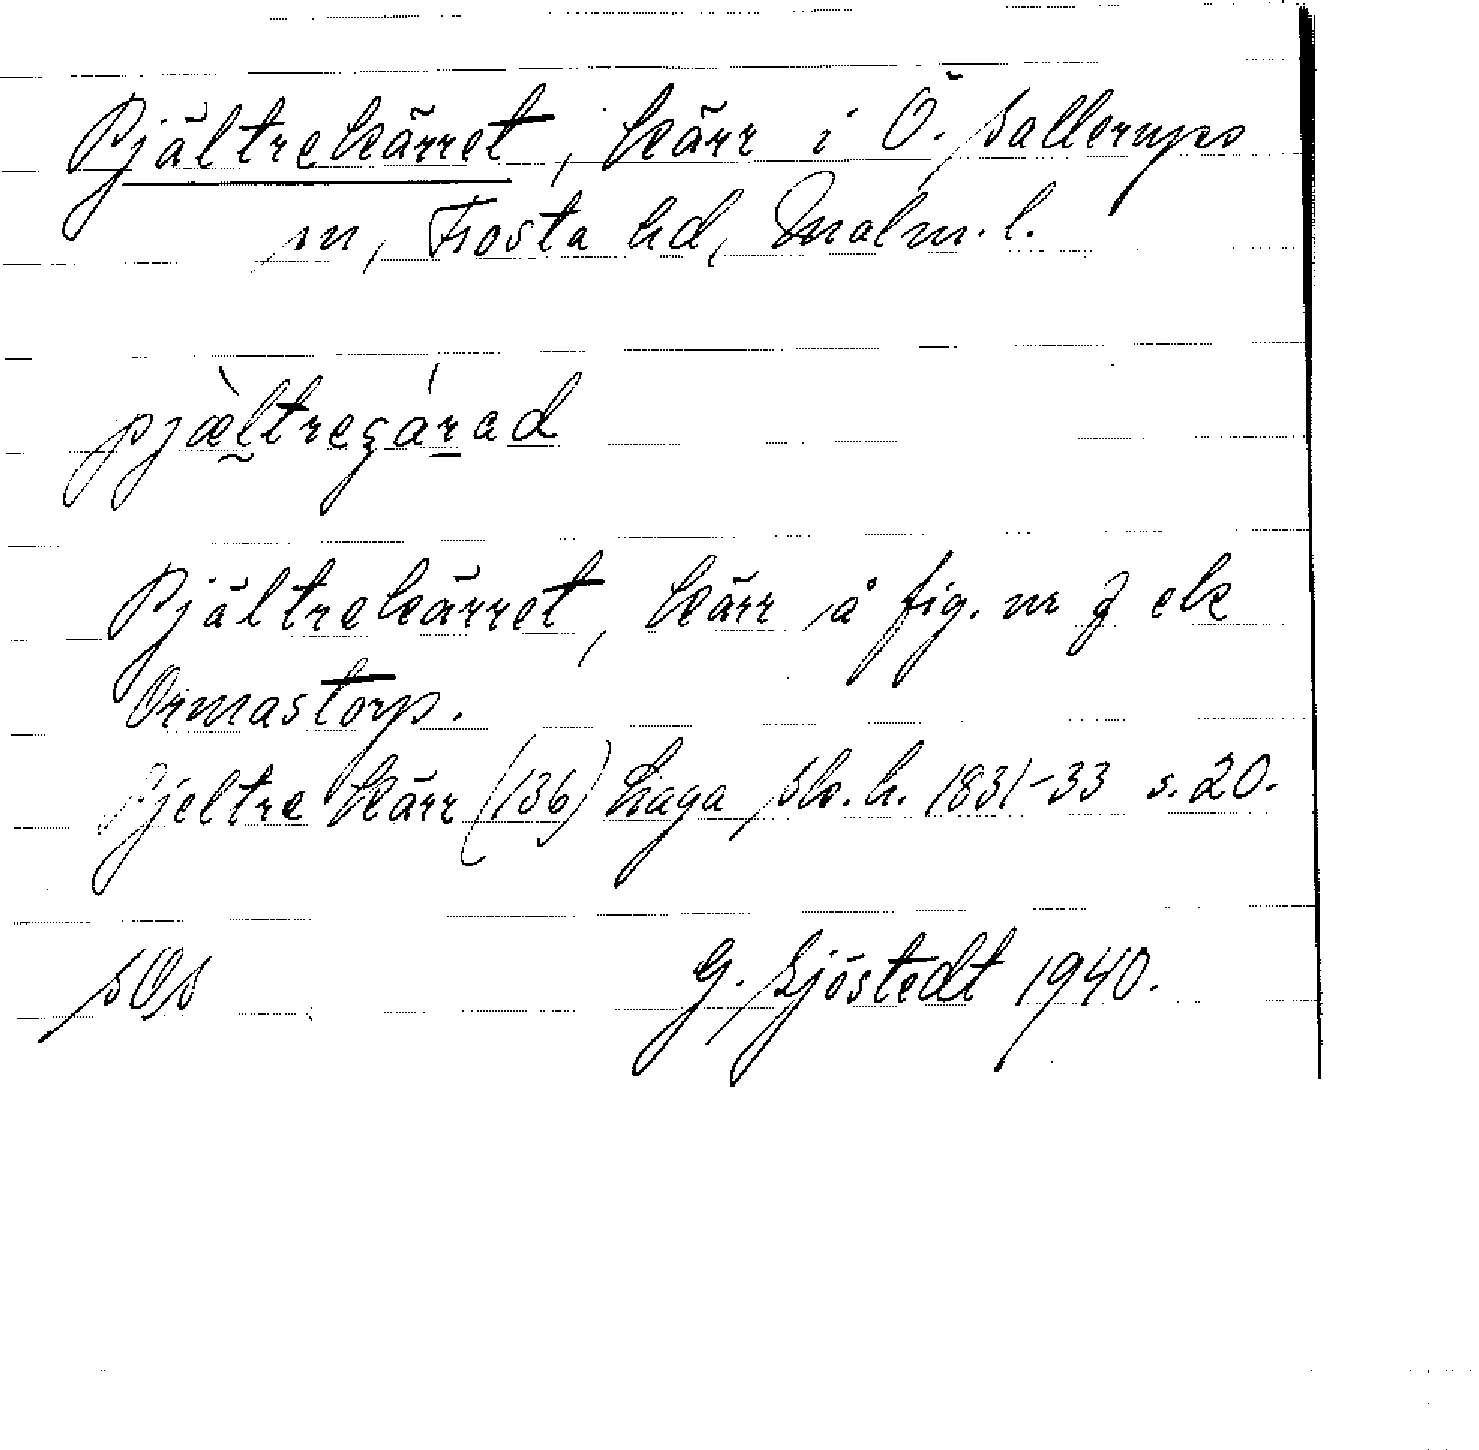 Pjältrekärret, kärr i Ö. Sallerups
sn, Frosta hd, Malm. l.
Pjältrekärret, kärr å fig. nr 7 ek
Ormastorp.
Pjeltre Kärr (136) Laga sk. h. 1831-33 s. 20.
SOS G. Sjöstedt 1940.